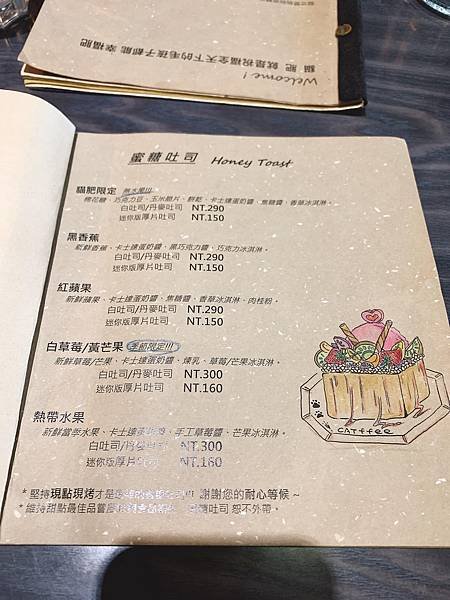 Welcome!
貓肥 就是祝福全天下的毛孩子都能 幸福肥
蜜糖吐司 Honey Toast
貓肥限定 無水果!!!
棉花糖、巧克力豆、玉米脆片、餅乾、卡士達蛋奶醬、焦糖醬、香草冰淇淋。
白吐司/丹麥吐司 NT.290
迷你版厚片吐司 NT.150
黑香蕉
新鮮香蕉、卡士達蛋奶醬、黑巧克力醬、巧克力冰淇淋。
白吐司/丹麥吐司 NT.290
迷你版厚片吐司 NT.150
紅蘋果
新鮮蘋果、卡士達蛋奶醬、焦糖醬、香草冰淇淋、肉桂粉。
白吐司/丹麥吐司 NT.290
迷你版厚片吐司 NT.150
白草莓/黃芒果 季節限定!!!
新鮮草莓/芒果、卡士達蛋奶醬、煉乳、草莓/芒果冰淇淋。
白吐司/丹麥吐司 NT.300
迷你版厚片吐司 NT.160
熱帶水果
新鮮當季水果、卡士達蛋奶醬、手工草莓醬、芒果冰淇淋。
白吐司/丹麥吐司 NT.300
迷你版厚片吐司 NT.160
CATffee
*堅持現點現烤才是 謝謝您的耐心等候~
*維持甜點最佳品嘗 吐司 恕不外帶。